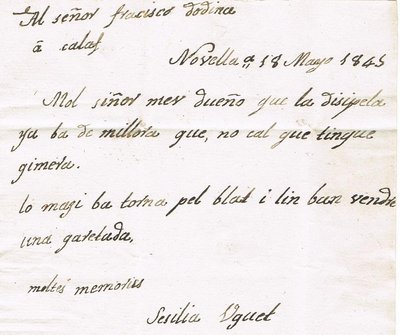 Al señor fracisco dodina
á calaf
Novella a 18 Mayo 1845
Mol siñor mev dueño que la disipela
ya ba de millora que, no cal que tingue
gimera.
lo magi ba torna pel blat i lin ban vendre
una garetada,
moltes memories
Sesilia Uguet